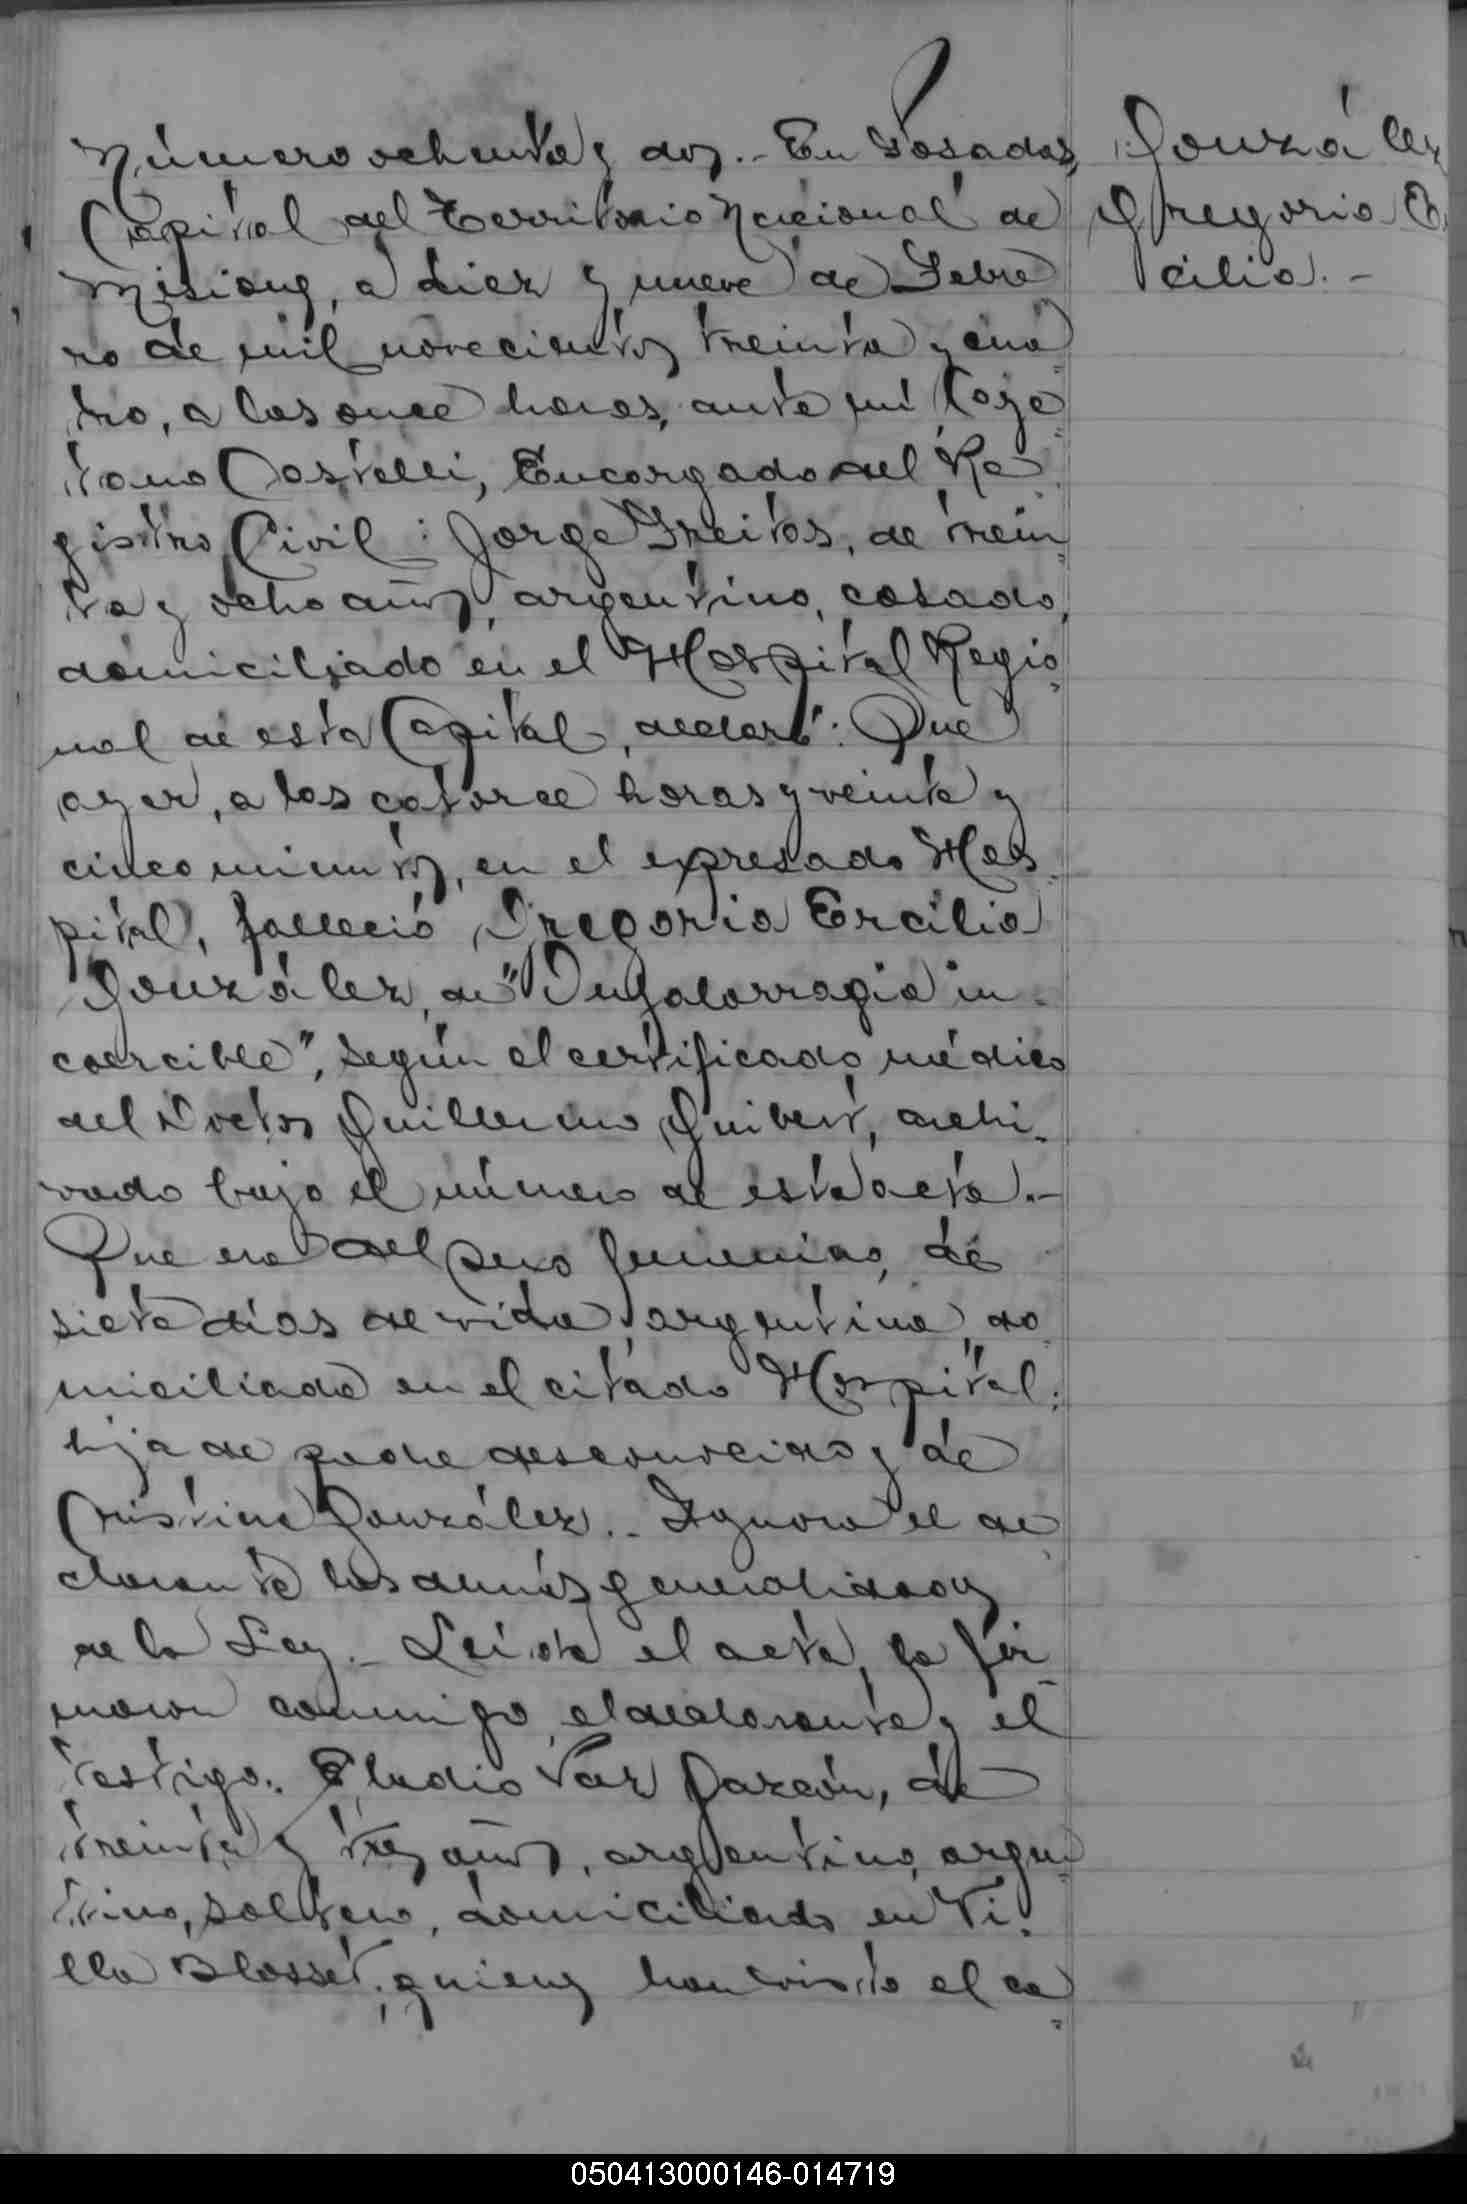 Número ochenta y dos.- En Posadas,
Capital del Territorio Nacional de
Misiones, a diez y nueve de Febre
ro de mil novecientos treinta y cua=
tro, a las once horas, ante mí Caye=
tano Castelli, Encargado del Re
gistro Civil: Jorge Freitas, de trein
ta y ocho años, argentino, casado,
domiciliado en el Hospital Regio=
nal de esta Capital, declaró: Que
ayer, a las catorce horas y veinte y
cinco minutos, en el expresado Hos
pital, falleció Gregoria Ercilia
González, de "Onfalorragia in-
coercible", según el certificado médico
del Doctor Guillermo Guibert, archi-
vado bajo el número de esta acta.-
Que era del sexo femenino, de
siete días de vida, argentina, do
miciliada en el citado Hospital:
hija de padre desconocido y de
Cristina González.- Ignora el de
clarante las demás generalidades
de la Ley.- Leída el acta, la fir
maron conmigo el declarante y el
testigo. Eladio Paz Garzón, de
treinta y tres años, argentino, argen=
tino, soltero, domiciliado en Vi=
lla Blosset, quienes han visto el ca=
González
Gregoria Er
cilia.-
050413000146-014719